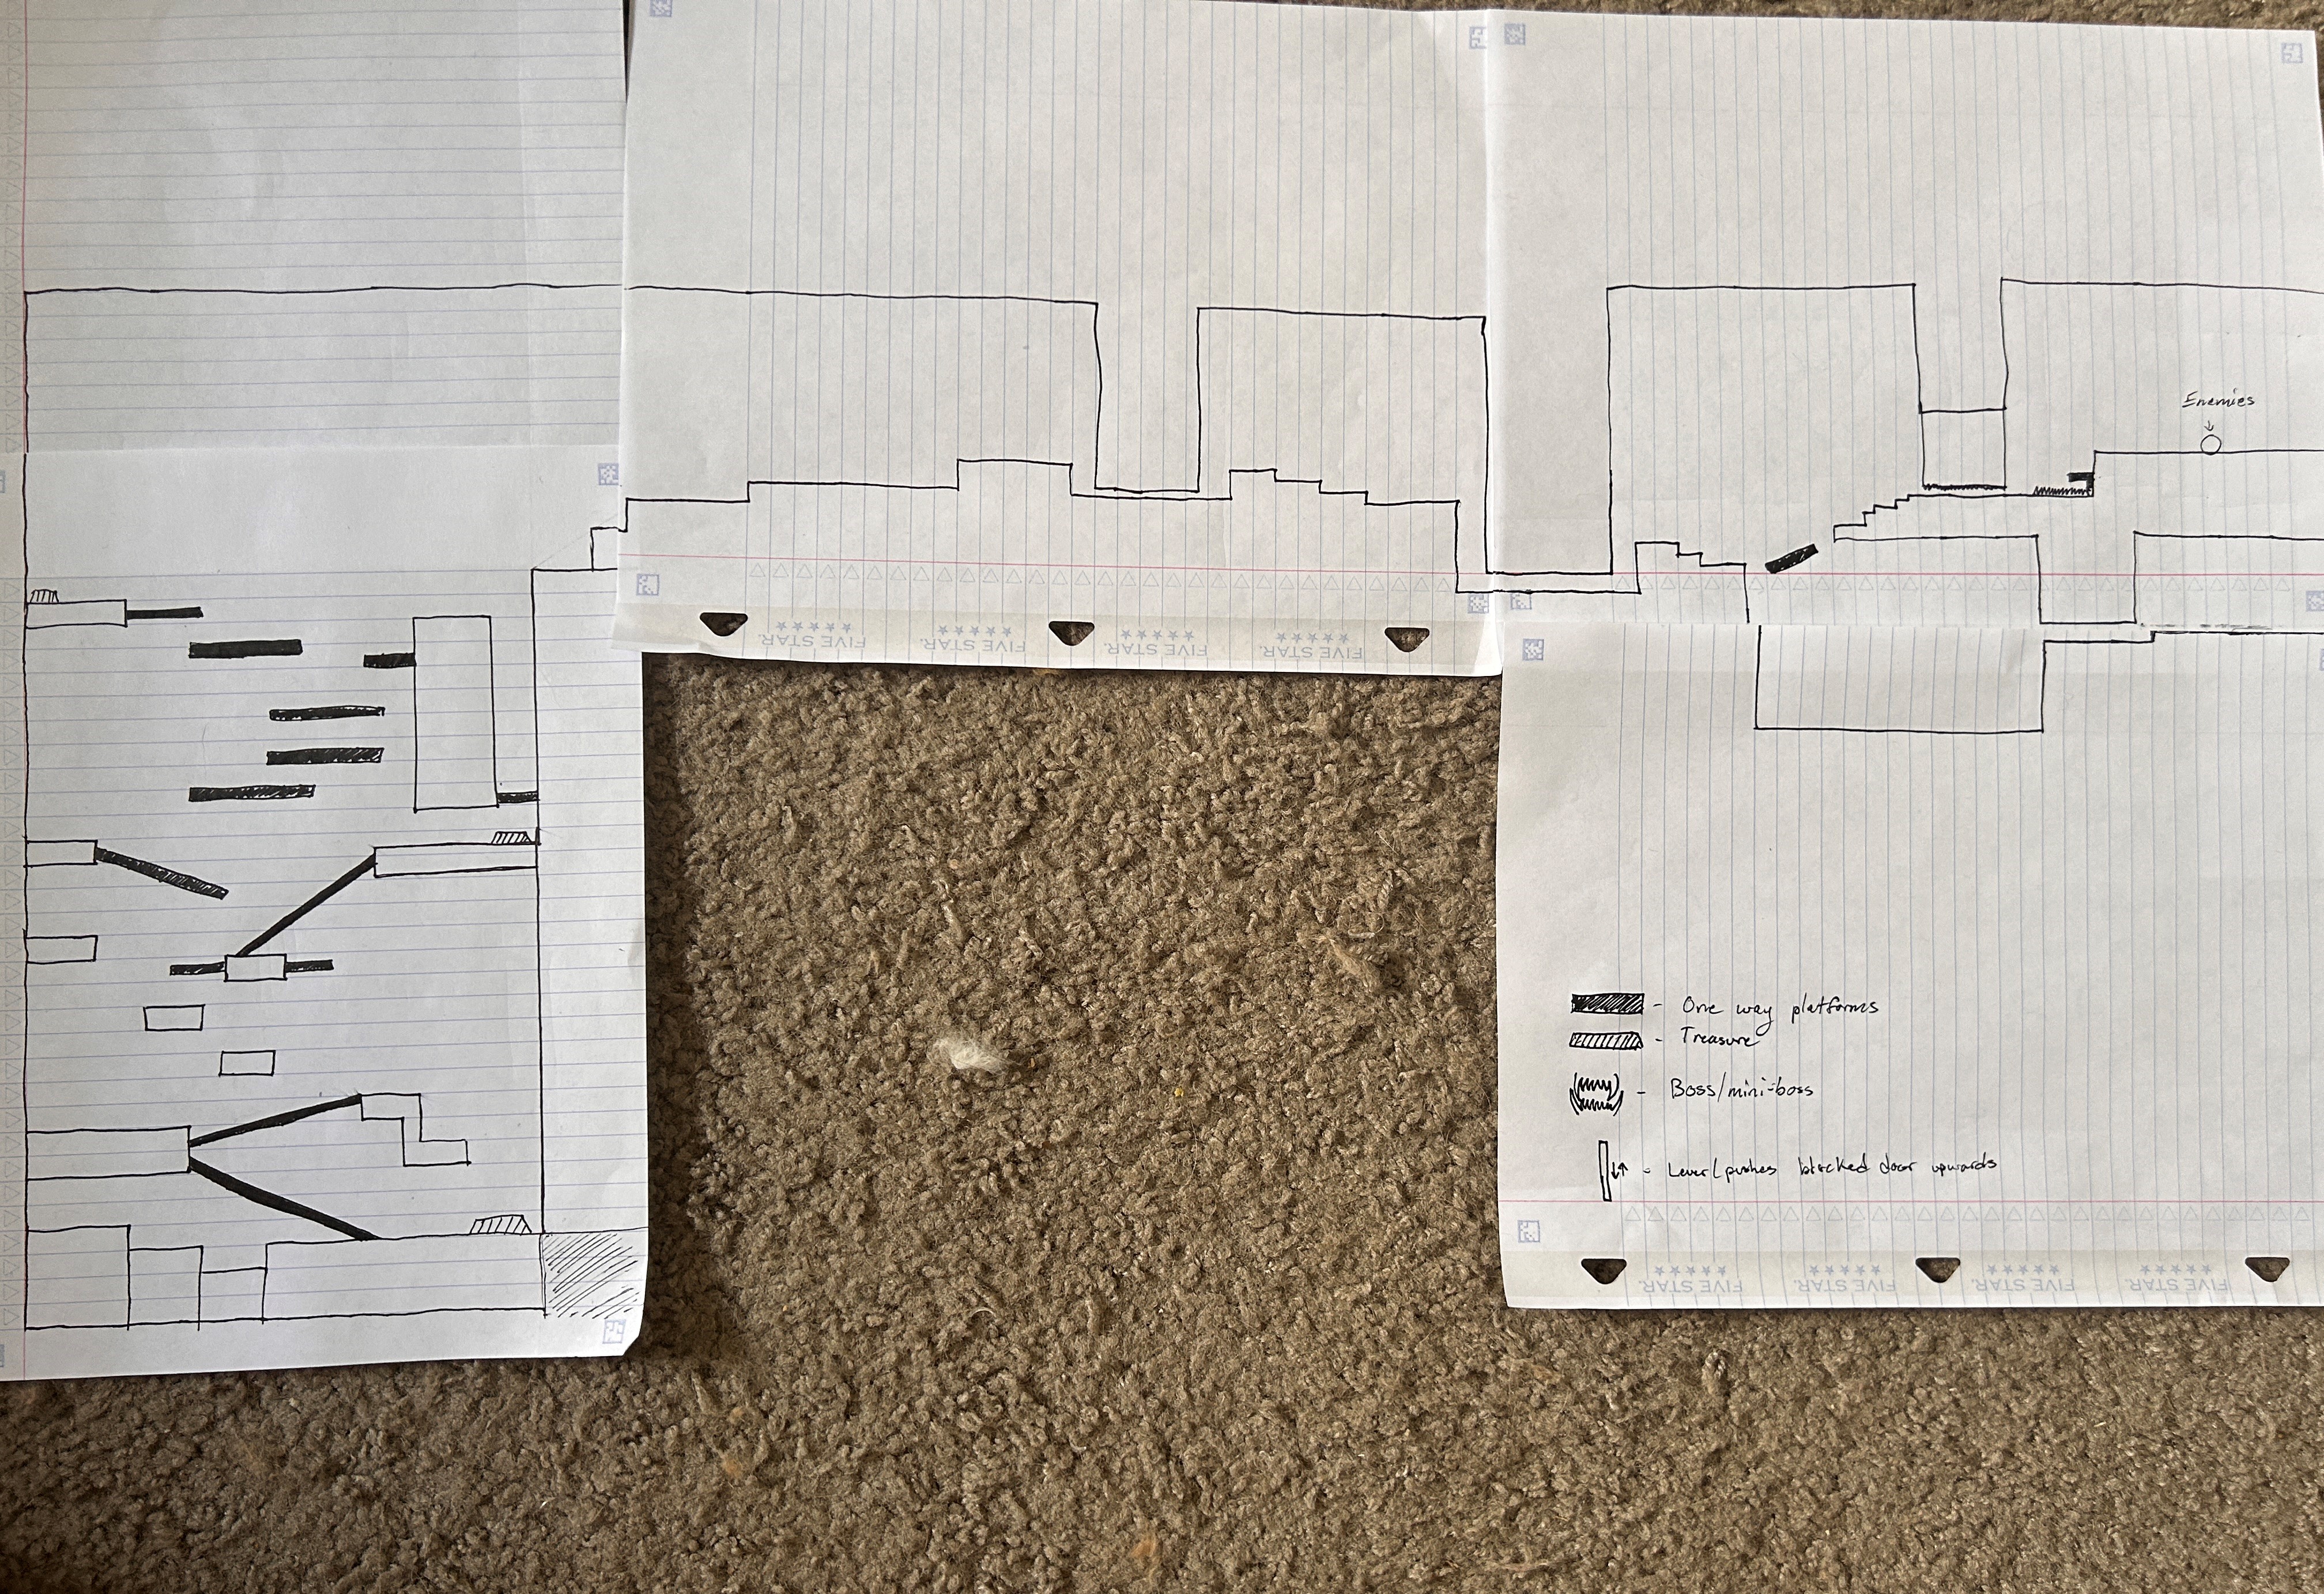 Enemies
FIVE STAR.
FIVE STAR.
FIVE STAR.
FIVE STAR.
One way platforms
Treasure
Boss/mini-boss
Lever/pushes blocked door upwards
FIVE STAR.
FIVE STAR.
FIVE STAR.
FIVE STAR.